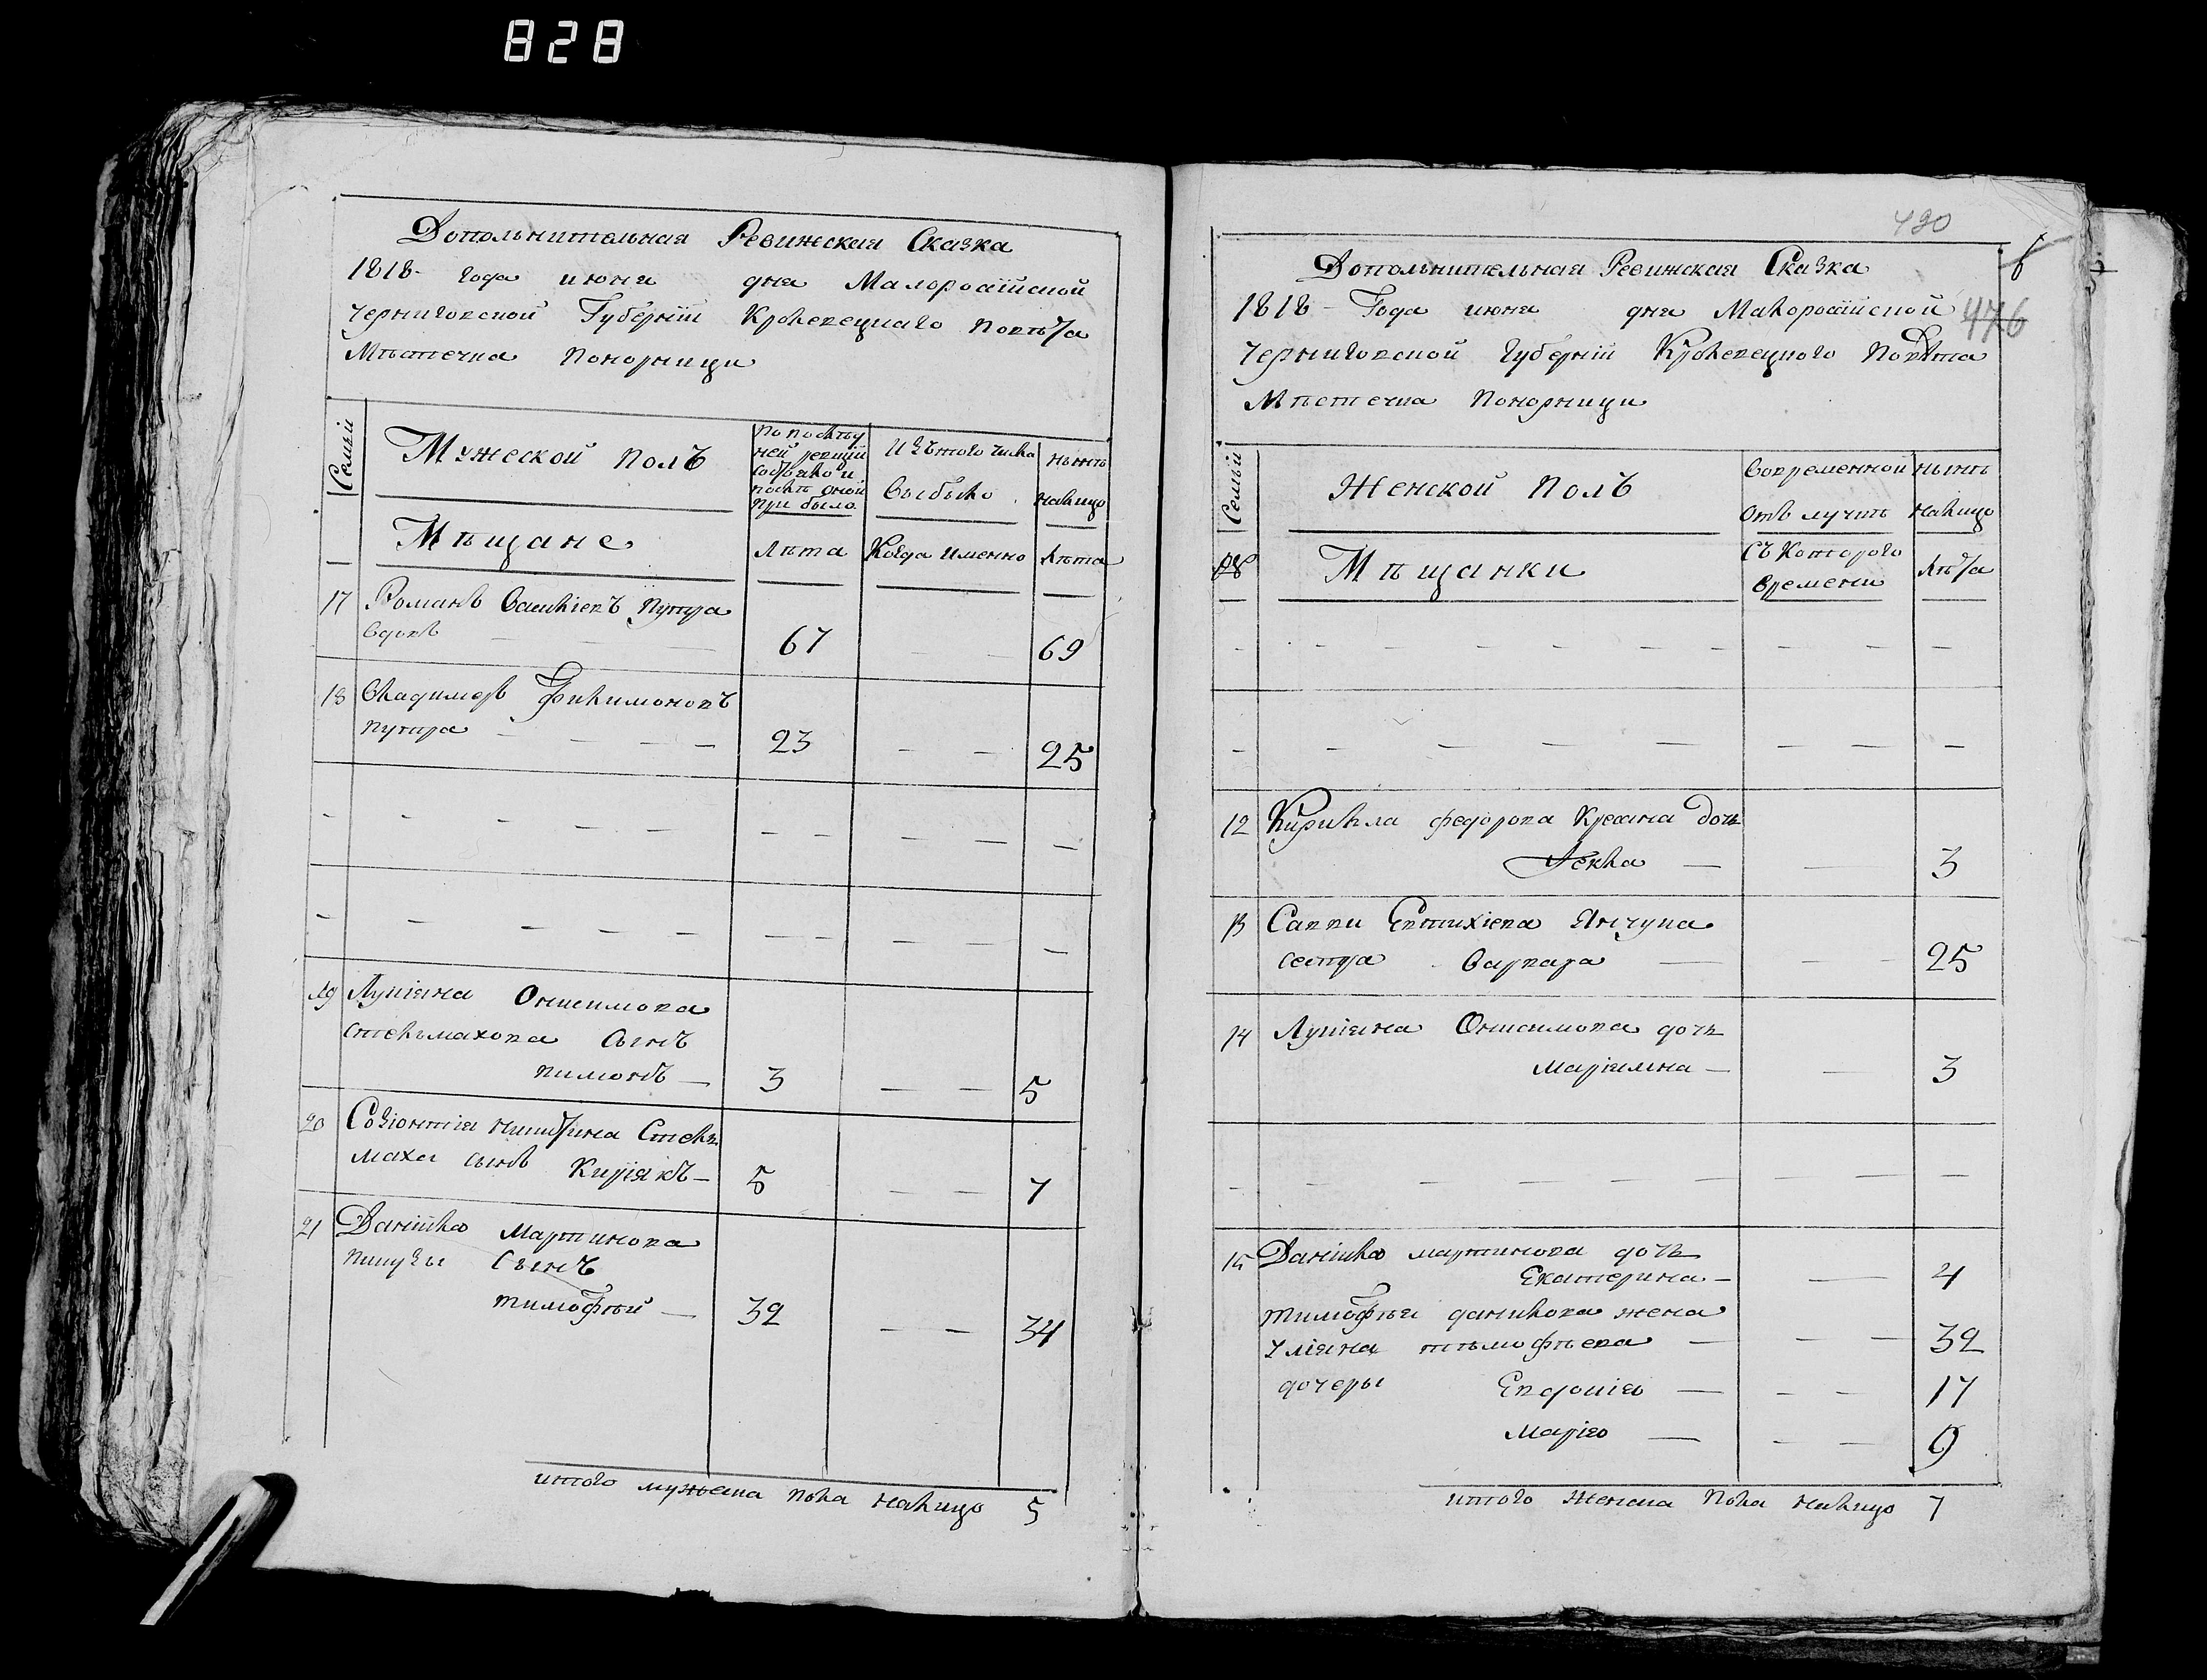 828
Дополнительная Ревижская Сказка
1818- года июня дня Малоросїйской
Черниговской Губернїи Кролевецкаго повѣта
Мѣстечка Понорници
Семьи
Мужеской полъ
По послѣд
ней ревизїи
состояло и
послѣ оной
при было
Изъ того числа
выбыло
нынѣ
налицо
Мѣщане
Лѣта
Когда именно
Лѣта
17 Романъ Василіевъ Путра
вдовъ — — 67 — — 69
18 Владимеръ Филимоновъ
Путра — — — — 23 — — 25
19 Лукіяна Онисимова
Стельмахова сынъ
Пимонъ — 3 — — 5
20 Созіонтія Никитина Стель
маха сынъ Киріякъ — 5 — — 7
21 Данійла Мартинова
сынъ
Тимофѣй — 32 — — 34
итого мужеска пола налицо 5
490
476
Дополнительная Ревижская Сказка
1818- Года июня дня Малоросїйской
Черниговской Губернїи Кролевецкого Повѣта
Мѣстечка Понорници
Семьи
Женской полъ
Вовременной
отъ лучкѣ
нынѣ
налицо
Мѣщанки
Съ Которого
времени
Лѣта
12 Кирилла Федорова дочь
Текла — — 3
13 Саввы Евтихіева Янчука
сестра Варвара — — — 25
14 Лукіяна Онисимова дочь
Маріямна — — 3
15 Данійла Мартинова дочь
Екатерина — — 4
Тимофѣя Данилова жена
Уліяна Тимофѣева — — — 32
дочеры Евдокія — — — 17
Марія — — — 9
итого Женска Пола налицо 7